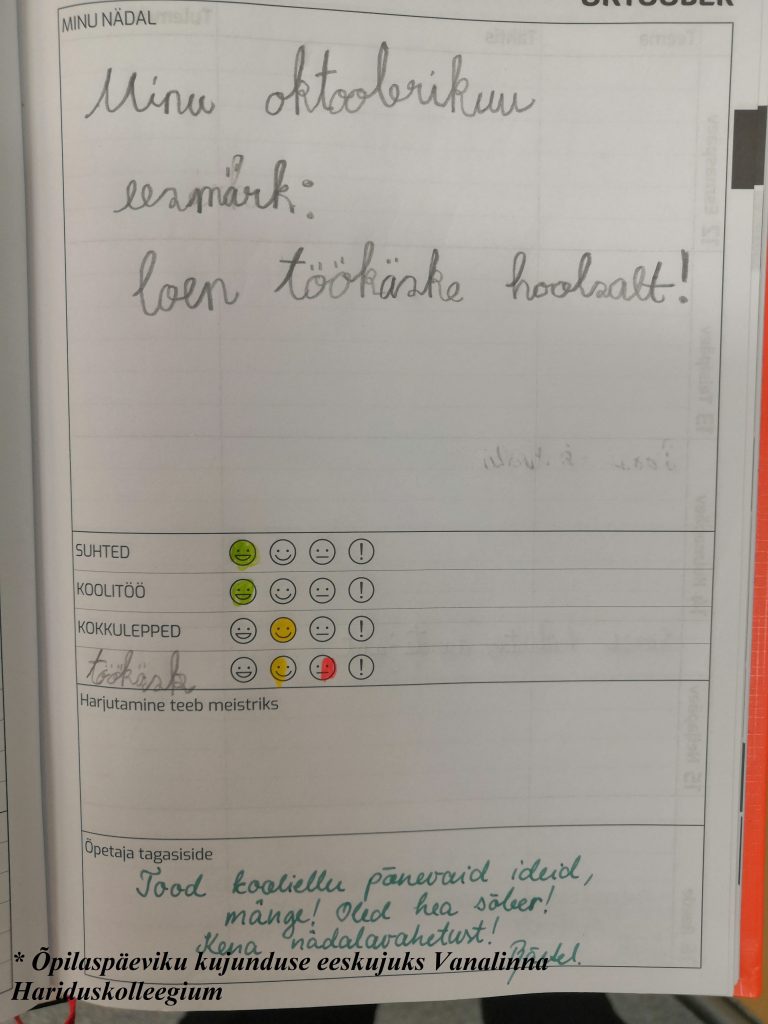 OKTOOBER
MINU NÄDAL
Minu oktoobrikuu
eesmärk:
loen töökäske hoolsalt!
SUHTED
KOOLITÖÖ
KOKKULEPPED
töökäsk
Harjutamine teeb meistriks
Õpetaja tagasiside
Tood kooliellu põnevaid ideid,
mänge! Oled hea sõber!
Kena nädalavahetust!
* Õpilaspäeviku kujunduse eeskujuks Vanalinna
Hariduskolleegium